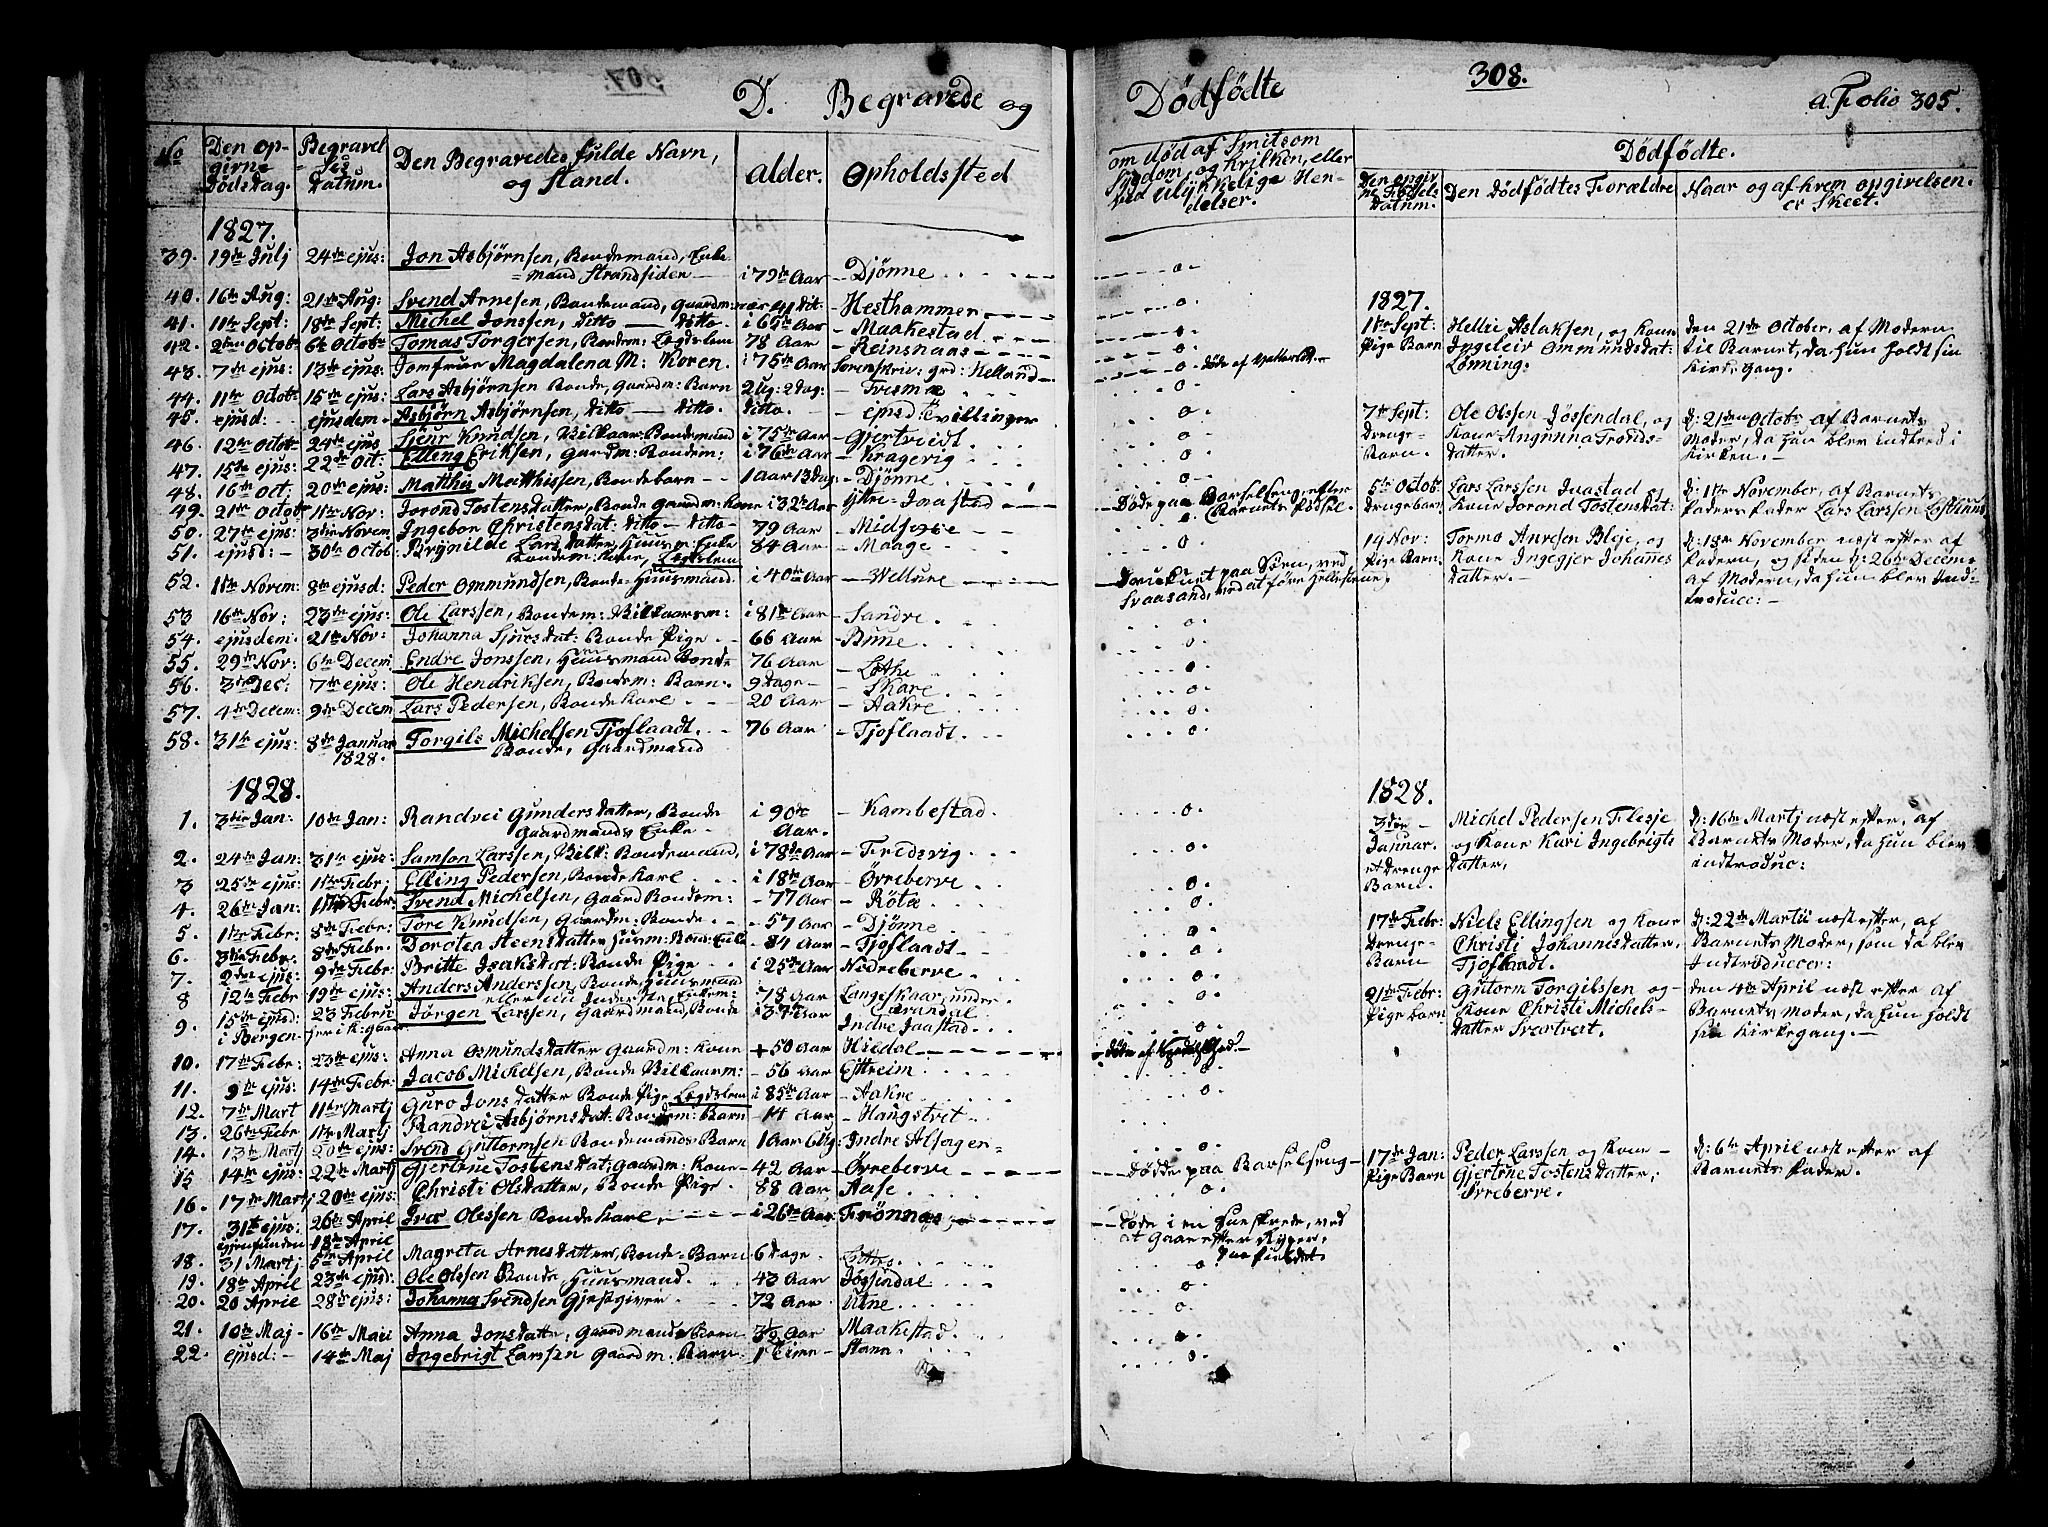 D. Begravede og Dødfødte 308. a. Folio 305.
No
Den op-
girne
Dødsdag.
Begravel
ses
Datum.
Den Begravedes fulde Navn,
og Stand.
alder.
Opholdssted
om død af Smitsom
Sygdom, og hvilken, eller
ved ulykkelige Hen-
delser.
Dødfødte.
Den opgiv
ne Fødsels
Datum.
Den Dødfødtes Forældre
Naar og af hvem opgivelsen
er Skeet.
1827.
39. 19de Julj 24de ejus: Jon Asbjørnsen, Bondemand, Enke
mand Strandsiden i 79de Aar - Djønne
40. 16de Aug: 21de Aug: Svend Arnesen, Bondemand, Gaardm: 41 Hesthammer
41. 11te Sept: 18de Sept: Michel Jonssen, Ditto - Ditto. i 69de Aar - Maakestad
42. 2den Octobr 6te Octobr Tomas Torgersen, Bondem: Lægdslem 78 Aar - Reinsnaas
43. 7de ejus: 13de ejus: Jomfrue Magdalena M: Koren. i 75de Aar Sorenskriv: grd: Helland - døde af
44. 11te Octobr 15de ejus: Lars Asbjørnsen Bonde, Gaardm: Barn 2 Ug: 2 Dag: - Tvesmæ
45. ejusd: ejusdem - Asbjørn Asbjørnsen, Ditto - Ditto. Ditto. - ejusd: Tvillinger
46. 12te Octobr 24de ejus Sjeur Knudsen, Vilkaar: Bondemand i 75de Aar - Gjertveidt
47. 15de ejus: 22de Oct: Elling Eriksen, Gaardm: Bondem: i 76de Aar - Kragevig
48. 16de Oct. 20de ejus: Matthis Matthissen, Bondebarn - 1 Aar 13 Dag: - Djønne
49. 21de Octobr 11te Nov: Jorond Tostensdatter, Bonde Gaardm: Kone i 32te Aar Yttre Jaastad - Døde paa Barselseng, efter
Barnets Fødsel.
50. 27de ejus: 3die Novem Ingebor Christensdat: Ditto - Ditto - 79 Aar - Midsøre
51. ejusd: - 30te Octob: Brynilde Lars Datter, Huusm: Enke
Bondem: Kone, Lægdslem 84 Aar - Maage
52. 11te Novem: 8de ejusd: Peder Ommundsen, Bonde Huusmand i 40de Aar - Vellure - Druknet paa Søen, ved
Svaasand, ved at føre Hellestene
53 16de Nov: 23de ejus: Ole Larssen, Bondem: Vilkaarsm: i 81de Aar - Sandre
54. ejusdem. 21de Nov: Johanna Sjursdat: Bonde Pige 66 Aar - Bune
55. 29de Nov: 6te Decem Endre Jonssen, Huusmand Bonde 76 Aar - Lothe
56. 3die Dec: 7de ejus: Ole Hendriksen, Bondem: Barn. 9 Dage - - Skare
57. 4de Decem: 9de Decem Lars Pedersen, Bondekarl 20 Aar - Aakre
58. 31te ejus: 8de Januar
1828. Torgils Michelsen Tjoflaadt.
Bonde, Gaardmand 76 Aar - Tjoflaadt
1828.
1. 3die Jan: 10de Jan: Randvei Gunders Datter, Bonde
Gaardmands Enke i 90de
Aar. - Kambestad
2. 24de Jan: 31te ejus: Samson Larssen, Vilk: Bondemand, i 78de Aar - Tredsvig
3 25de ejus: 1te Febr: Elling Pedersen, Bondekarl i 18de Aar - Øvreberve
4. 26de Jan: Febr: Svend Michelsen, Gaard Bondem: - 77 Aar - Røtæ
5. 1te Febr: 8de Febr: Tore Knudsen, Gaardm: Bonde - 57 Aar - Djønne
6. 3die Febr. 8de Febr. Dorotea Steens Datter Huusm: Bond: Enke - 84 Aar - Tjoflaadt
7. 2den ejus: 9de Febr: Britte Isaksdat: Bonde Pige i 25de Aar - Nedreberve
8 12te Febr 19de ejus: Anders Anderssen, Bonde Huusmand
78 Aar Langeskaar, under
9. 15de ejusd:
i Bergen 23 Febru Jørgen Larssen, Gaardmand, Bonde i 37te Aar Indre Jaastad
10. 17de Febr: 23de ejus: Anna Osmunds Datter Gaardm: Kone + 50 Aar Hildal
11. 9de ejus: 14de Febr: Jacob Michelsen, Bonde Vilkaarm: - 56 Aar Eittreim
12. 7de Mart 11te Martj Guro Jons Datter Bonde Pige Lægdslem i 85de Aar - Aakre
13. 26de Febr 1te Martj Randvei Asbjørnsdat: Bondem: Barn - 14 Aar - Haugstvet
14. 13de Martj 20de ejus: Svend Guttormsen Bondemands Barn 1 Aar 6 Ug: Indre Alsager
15 14de ejus: 22de Martj Gjertrue Tostensdat: Gaardm: Kone - 42 Aar - Øvreberve - Dødde paa Barselseng
16. 17de Martj 20de ejus: Christi Olsdatter, Bonde Pige 88 Aar Aase
17. 31te ejus:
igjenfunden 26de April
18de April Iver Olssen Bondekarl, i 26de Aar Trønnes - Døde i en Sneskrede, ved
at Gaae efter Ryper,
paa Fieldet
18. 31 Martj 5te April Magreta Arnesdatter, Bonde Barn 6 Dage.
19. 18de April 23de ejusd: Ole Olssen Bonde, Huusmand. 43 Aar Jøssendal
20. 20 April 28de ejus: Johannes Svendsen Gjestgiver 72 Aar Utne
21. 10de Maj - 16de Maii Anna Jonsdatter Gaardmands Barn 3½ Aar Maakestad
22. ejusd: - 14de Maj Ingebrigt Larssen Gaardm: Barn 1 Time - Stana
1827.
11te Sept:
Pige Barn
Hellie Aslaksen, og Kone
Ingeleiv Ommundsdat:
Lønning.
den 21de October, af Modern
til Barnet, da hun holdt sin
Kirk-Gang.
7de Sept:
Drenge-
Barn.
Ole Olssen Jøssendal, og
Kone Angunna Tronds-
datter.
d: 21den Octobr af Barnets
Moder, da hun blev indled i
Kirken.
5te Octob:
Drengebarn
Lars Larssen Jaastad og
Kone Jorond Tostensdat:
d: 11te November, af Barnets
Faders Fader Lars Larssen
19 Nov:
Pige Barn.
Tormo Anresen Bleje, og
Kone Ingegjer Johannes
Datter.
d: 18de November næst efter af
Fadern, og siden d: 26de Decem:
af Modern, da hun blev Ind-
troduce: -
1828.
3die -
Januar
et Drenge
Barn.
Michel Pedersen Flesje
og Kone Kari Ingebrigts
Datter,
d: 16de Martj næst efter, af
Barnets Moder, da hun blev
indtroduc:
17de Febr:
Drenge-
Barn
Niels Ellingsen og Kone
Christi Johannisdatter,
Tjoflaadt.
d: 22de Martii næst efter, af
Barnets Moder, som da blev
Indtroducer:
21de Febr:
Pige Barn
Gutorm Torgilssen og
Kone Christi Michels-
datter Svartvet.
den 4de April næst efter af
Barnets Moder, da hun holdt
sin Kirkegang.
17de Jan:
Pige Barn
Peder Larssen og Kone
Gjertrue Tostens Datter,
Øvreberve.
d: 6te April næst efter af
Barnets Fader.